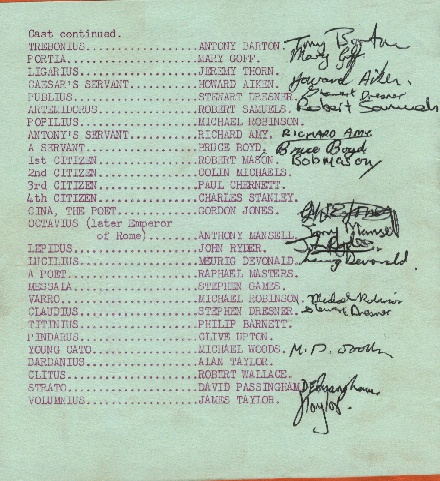 Cast continued.
TREBONIUS....................ANTONY BARTON. Tony Barton
PORTIA.......................MARY GOFF. Mary Goff
LIGARIUS.....................JEREMY THORN.
CAESAR'S SERVANT.............HOWARD AIKEN. Howard Aiken.
PUBLIUS......................STEWART DRESNER. Stewart Dresner
ARTEMIDORUS..................ROBERT SAMUELS. Robert Samuels
POPILIUS.....................MICHAEL ROBINSON.
ANTONY'S SERVANT.............RICHARD AMY. RICHARD AMY.
A SERVANT....................BRUCE BOYD. Bruce Boyd
1st CITIZEN..................ROBERT MASON. Bob Mason
2nd CITIZEN..................COLIN MICHAELS.
3rd CITIZEN..................PAUL CHERNETT.
4th CITIZEN..................CHARLES STANLEY.
CINA, THE POET...............GORDON JONES.
OCTAVIUS (later Emperor
of Rome)....ANTHONY MANSELL. Tony Mansell
LEPIDUS......................JOHN RYDER. J. Ryder
LUCILIUS.....................MEURIG DEVONALD. Meurig Devonald
A POET.......................RAPHAEL MASTERS.
MESSALA......................STEPHEN GAMES.
VARRO........................MICHAEL ROBINSON. Michael Robinson
CLAUDIUS.....................STEPHEN DRESNER. Stewart Dresner
TITINIUS.....................PHILIP BARNETT.
PINDARUS.....................CLIVE UPTON.
YOUNG CATO...................MICHAEL WOODS. M. D. Woods
DARDANIUS....................ALAN TAYLOR.
CLITUS.......................ROBERT WALLACE.
STRATO.......................DAVID PASSINGHAM. D Passingham
VOLUMNIUS....................JAMES TAYLOR. J Taylor.